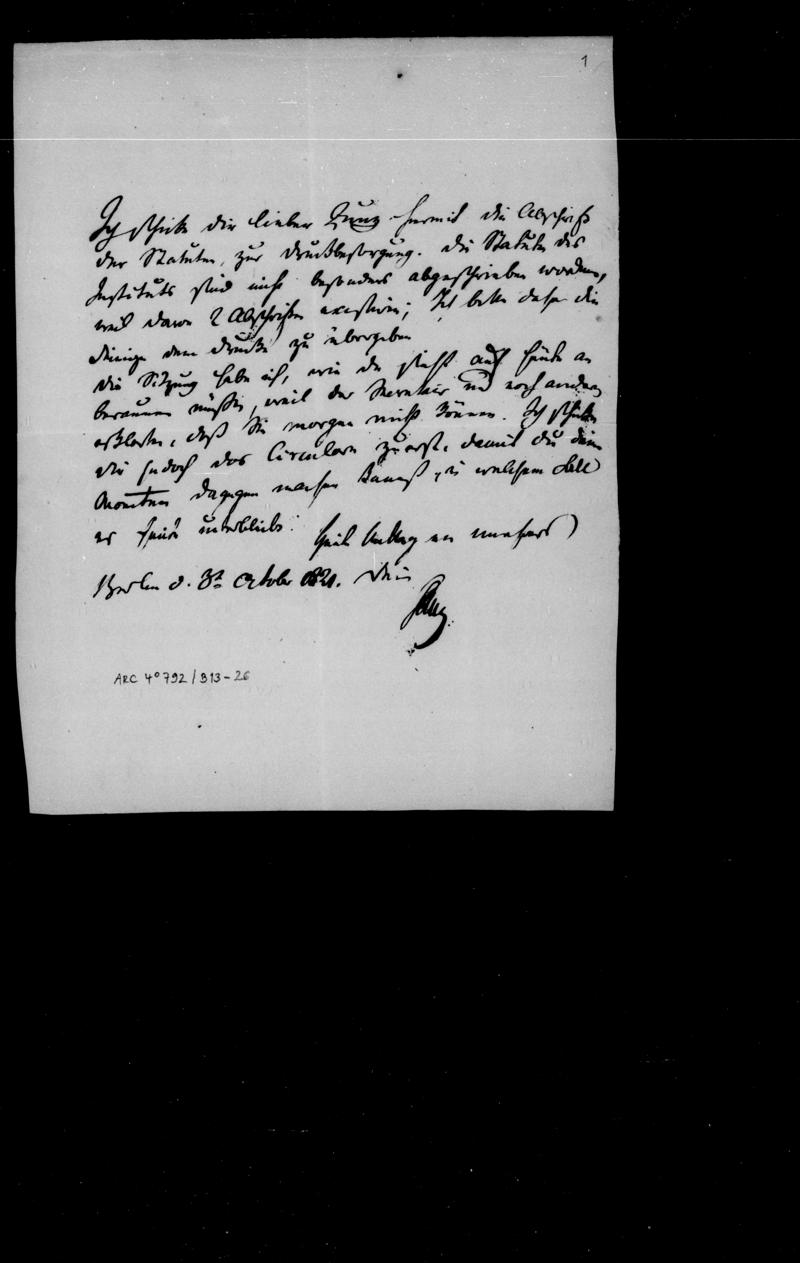 1
Ich schicke dir lieber Zunz hiermit die Abschrift
der Statuten, zur Druckbesorgung. Die Statuten des
Instituts sind nicht besonders abgeschrieben worden,
weil davon 2 Abschriften existiren; Ich bitte daher die
deinige dem Drucke zu übergeben
die Sitzung habe ich, wie du siehst auf heute an
beraumen müssen, weil der Secretair und noch andere
erklärten, daß Sie morgen nicht können. Ich schicke
dir jedoch das Circulare zuerst, damit du deine
dagegen machen kannst, in welchem Fall
es heute unterbliebe.
Berlin d. 3t October 1821. Dein
Gans
ARC 4° 792/B13-26